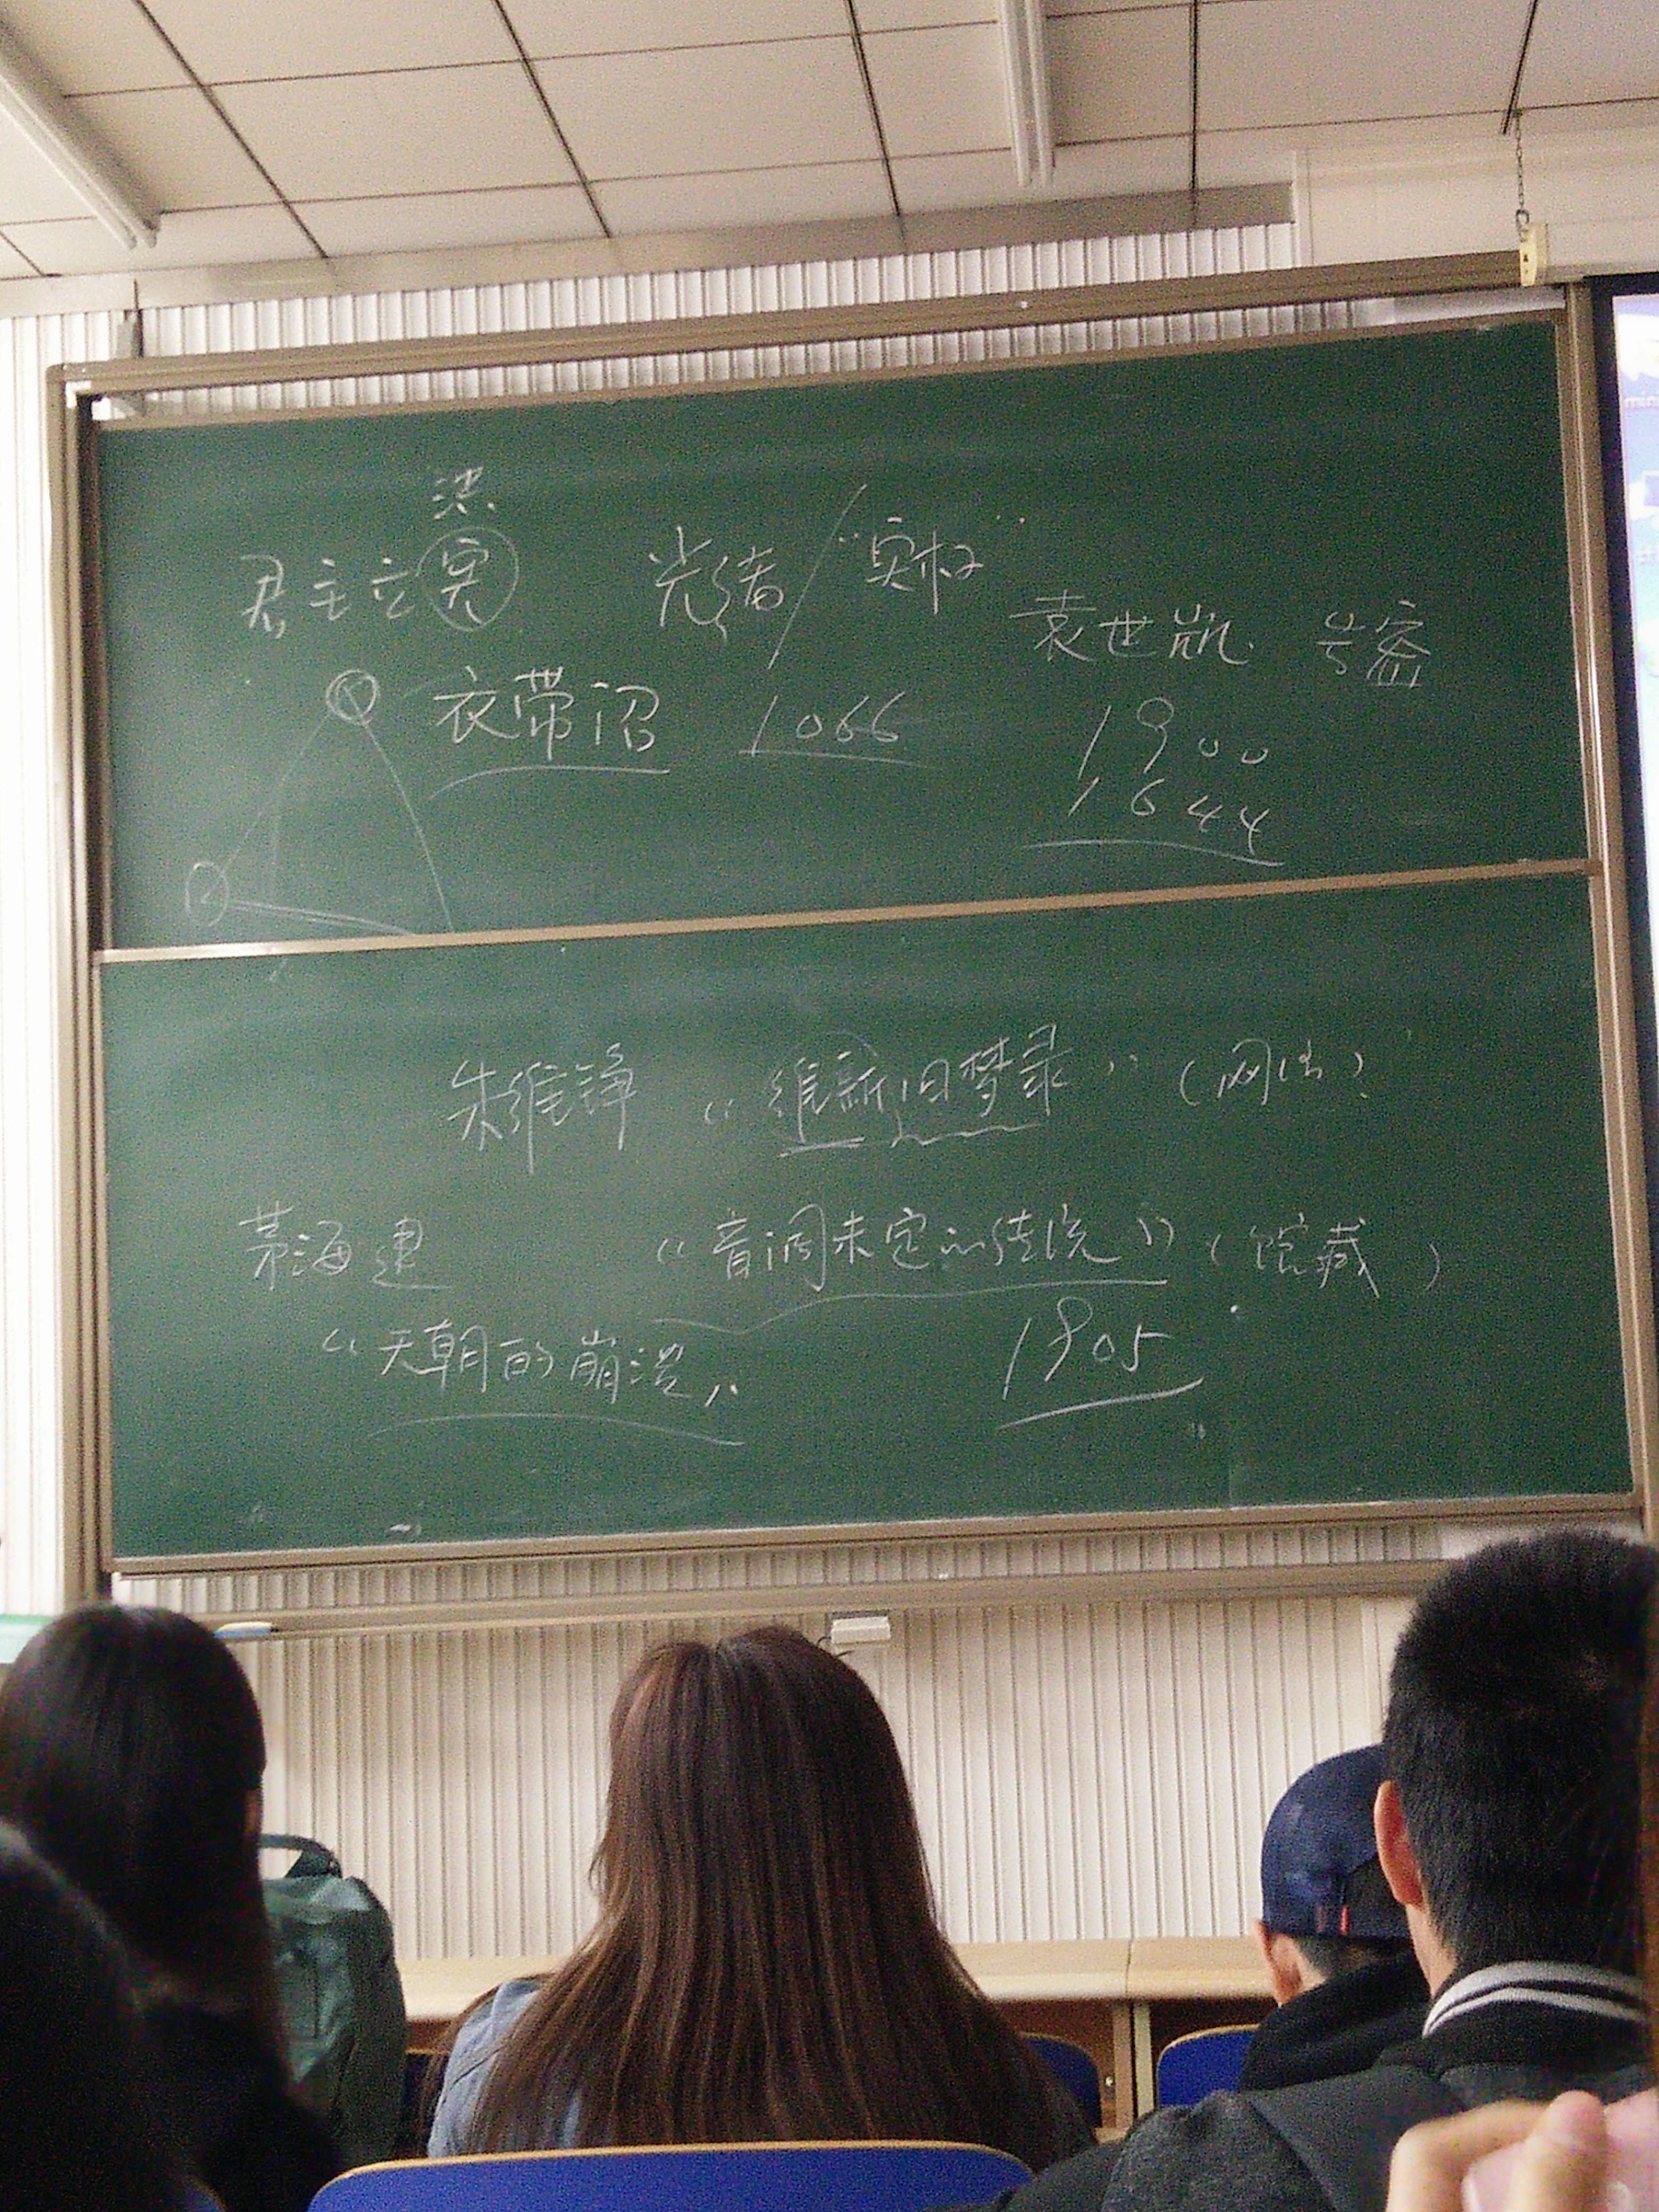 法
君主立宪 光绪/"实权"
袁世凯 告密
衣带诏 1066
1900
1644
朱维铮 《维新旧梦录》(网络)
茅海建 《音调未定的传统》(馆藏)
《天朝的崩溃》 1905